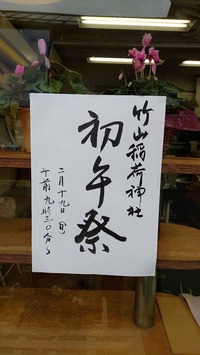 竹山稲荷神社
初午祭
二月十九日(月)
午前九時三〇分〜